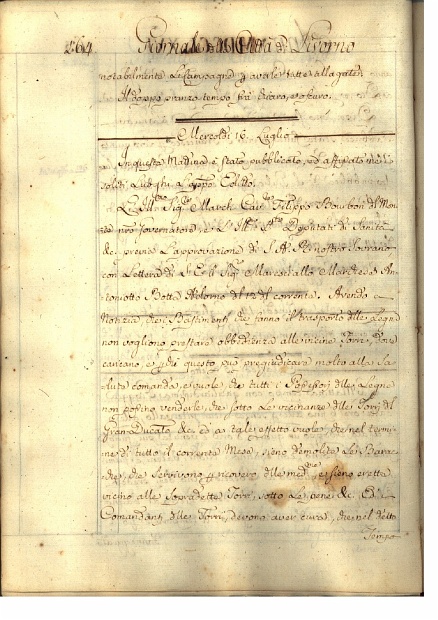 264. Giornale della Città di Livorno
notabilmente le Campagne,
Il doppo pranzo tempo frà chiaro, e oscuro.
Mercoledì 16 Luglio
In questa Mattina è stato pubblicato, ed affissato ne i
soliti Luoghi l'appo Editto.
L'Ill.mo Sig.re March. Cav.re Filippo Bourbon del Mon-
te pro Governatore e Deputati di Sanità
&c. previa l'approvazione di S. A. R. nostro Sovrano
con Lettera di S. E. il Sig.re Maresciallo Marchese An-
toniotto Botta Adorno del 12 del corrente. Avendo
Notizia che i Bastimenti che fanno il trasporto delle Legna
non vogliono prestare obbedienza alle vicine Torri, dove
caricano, e che questo può pregiudicare molto alla Sa-
lute comanda, e vuole che tutti i Possessori delle Legna
non possino venderle, che sotto le vicinanze delle Torri del
Gran Ducato &c. ed a tale effetto vuole, che nel termi-
ne di tutto il corrente Mese, sieno demolite le Barac-
che, che servivono p ricovero delle med.me e sieno erette
vicino alle sovradette Torri, sotto le pene &c. E i
Comandanti delle Torri, devono aver cura, che nel detto
Tempo